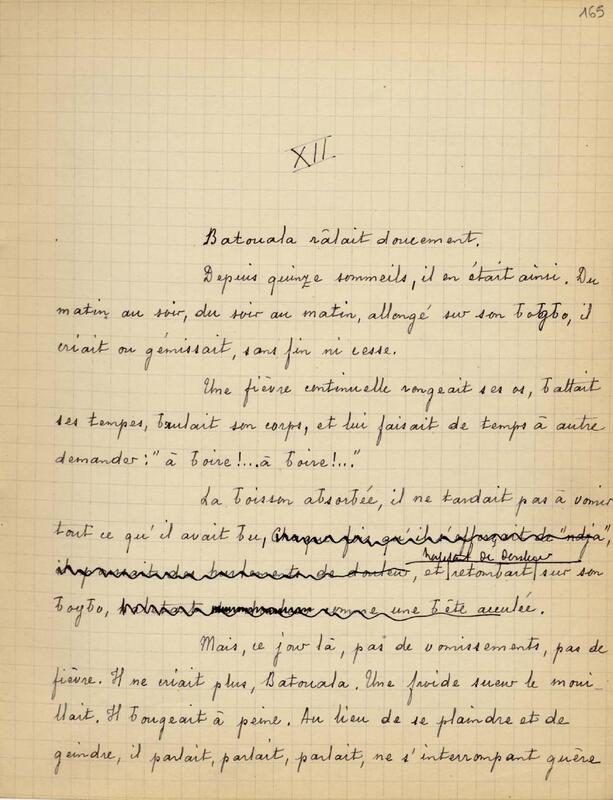 165
XII
Batouala râlait doucement.
Depuis quinze sommeils, il en était ainsi. Du
matin au soir, du soir au matin, allongé sur son bogbo, il
criait ou gémissait, sans fin ni cesse.
Une fièvre continuelle rongeait ses os, battait
ses tempes, brulait son corps, et lui faisait de temps à autre
demander : "à boire !... à boire !..."
La boisson absorbée, il ne tardait pas à vomir
tout ce qu'il avait bu, chaque fois qu'il s'efforçait de "ndja",
de douleur
il poussait des de douleur, et retombait sur son
bogbo, comme une bête acculée.
Mais, ce jour là, pas de vomissements, pas de
fièvre. Il ne criait plus, Batouala. Une froide sueur le moui_
llait. Il bougeait à peine. Au lieu de se plaindre et de
geindre, il parlait, parlait, parlait, ne s'interrompant guère